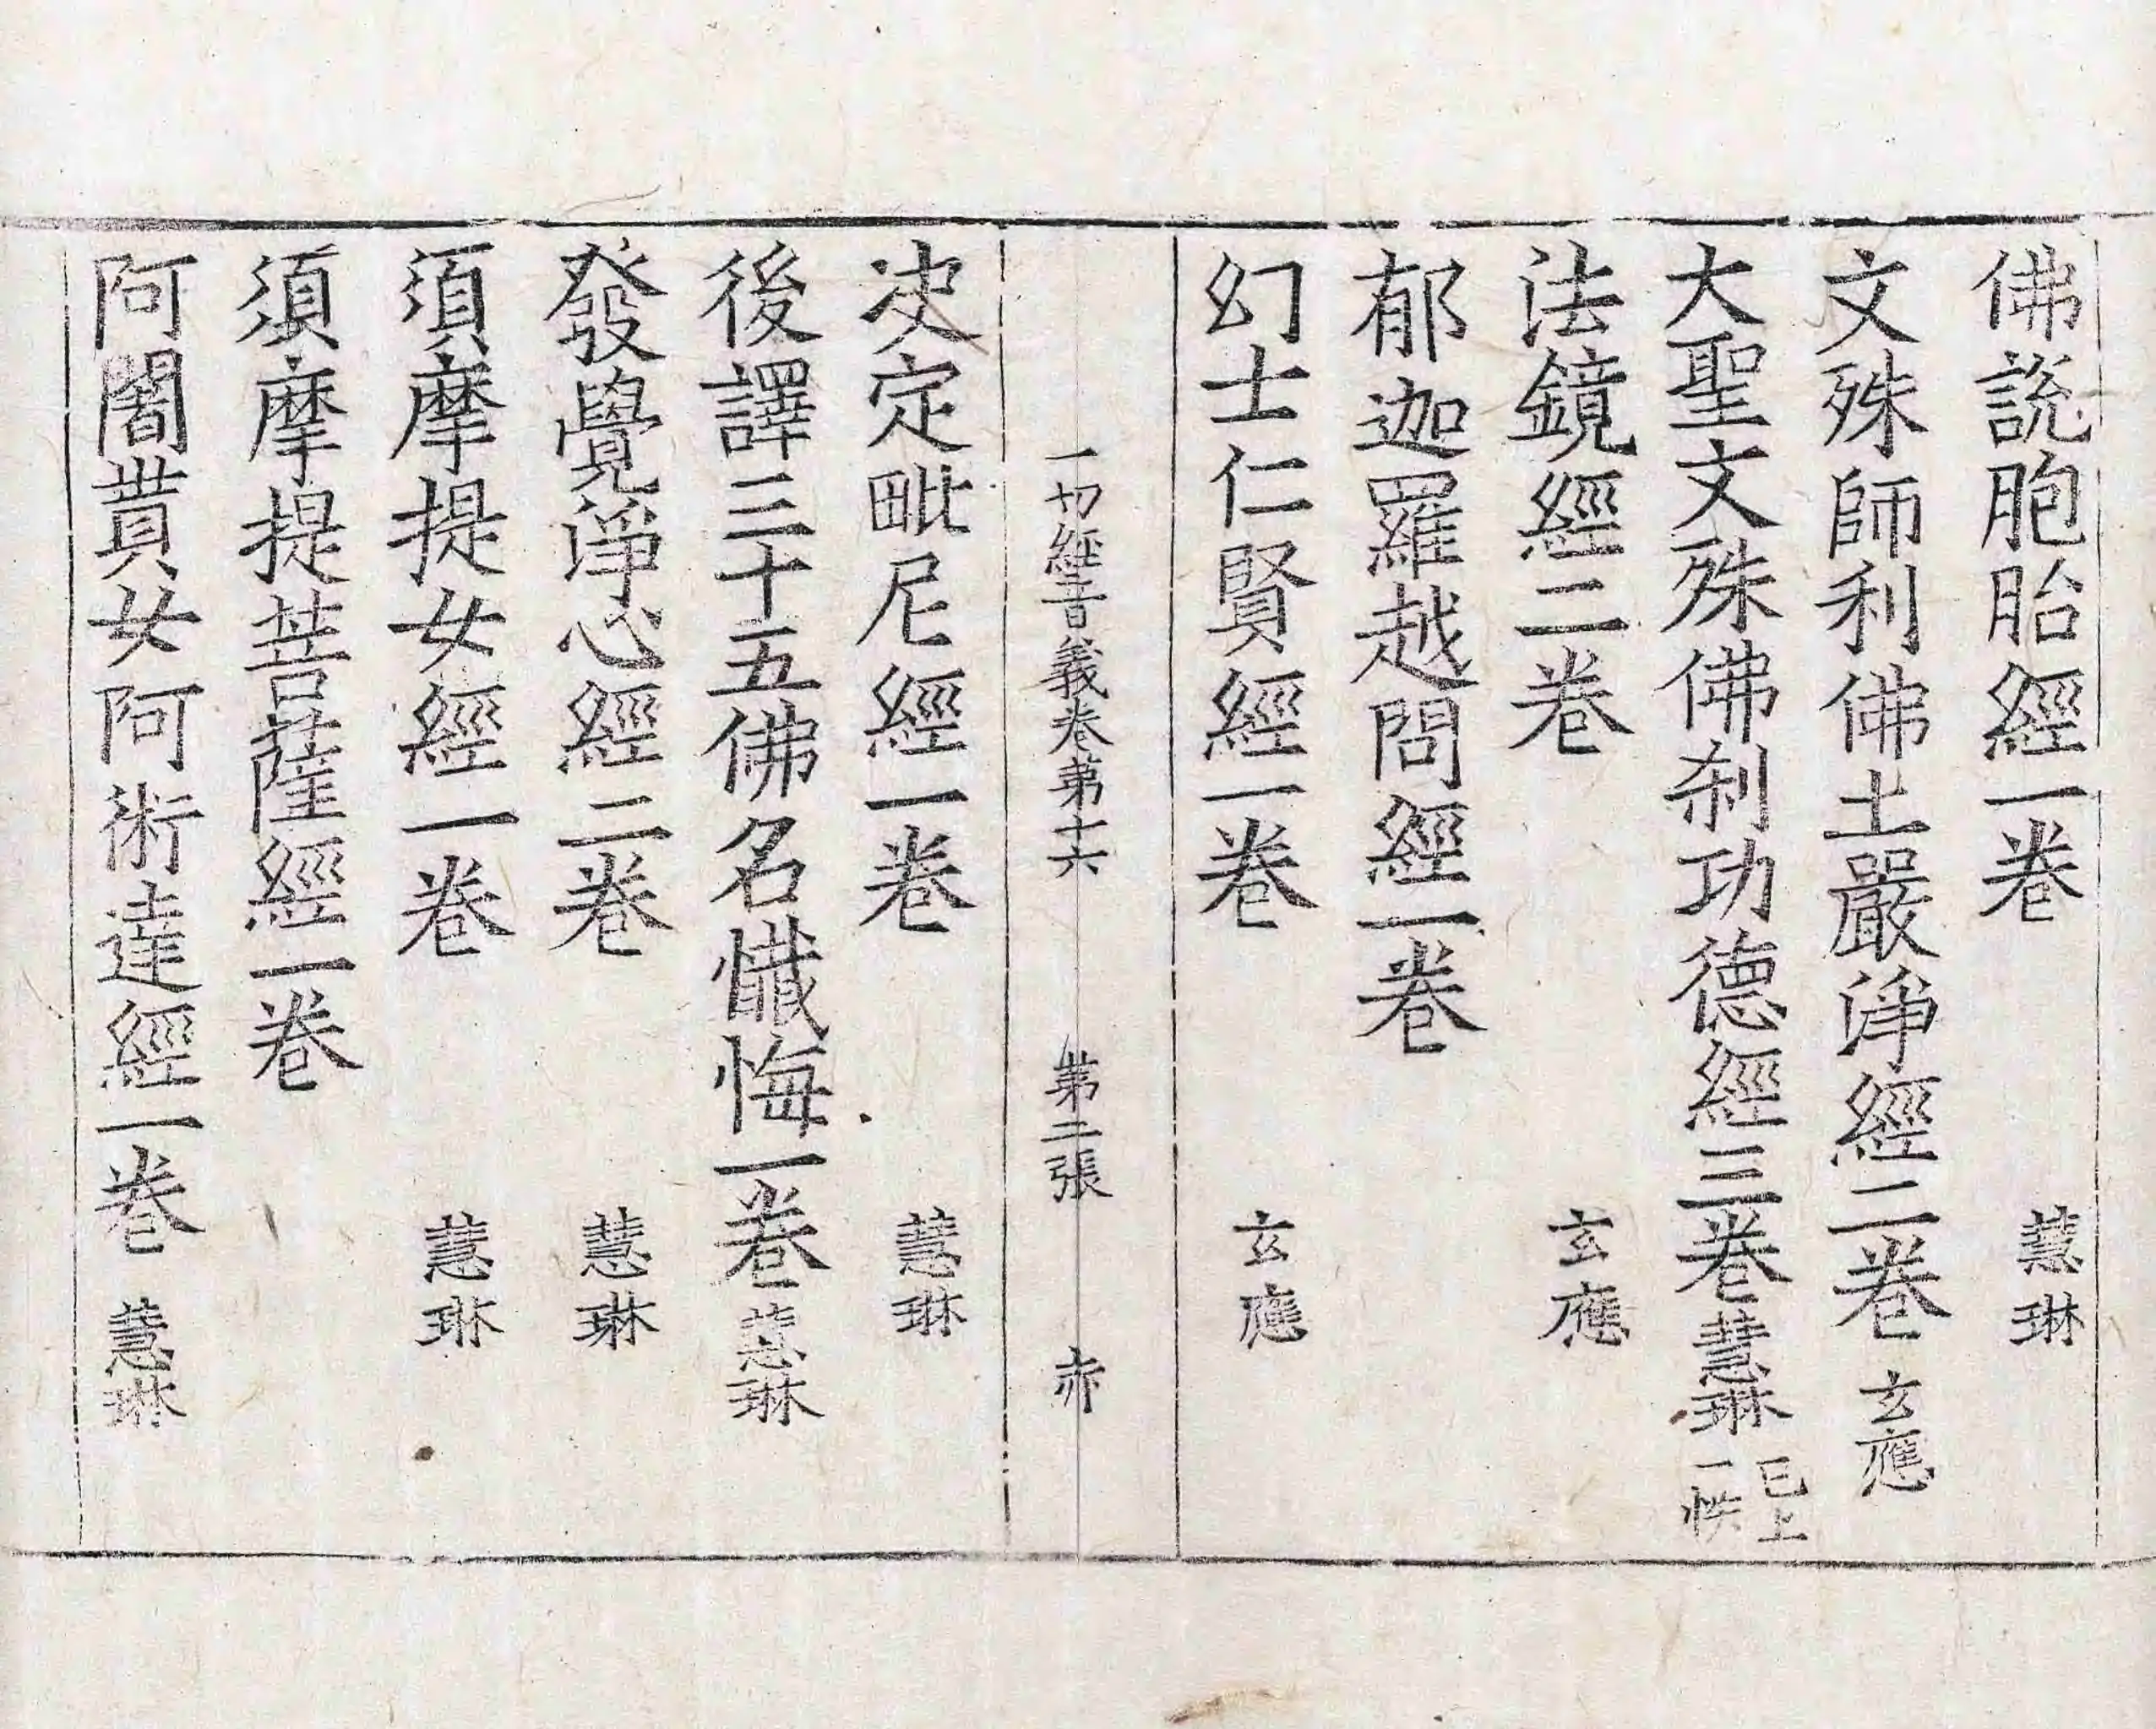 佛說胞胎經一卷 慧琳
文殊師利佛土嚴淨經二卷 玄應
大聖文殊佛剎功德經三卷 慧琳 已上一帙
法鏡經二卷 玄應
郁迦羅越問經一卷
幻士仁賢經一卷 玄應
一切經音義卷第十六 第二張 赤
决定毗尼經一卷 慧琳
後譯三十五佛名懺悔一卷 慧琳
發覺淨心經二卷 慧琳
須摩提女經一卷 慧琳
須摩提菩薩經一卷
阿闍貰女阿術達經一卷 慧琳